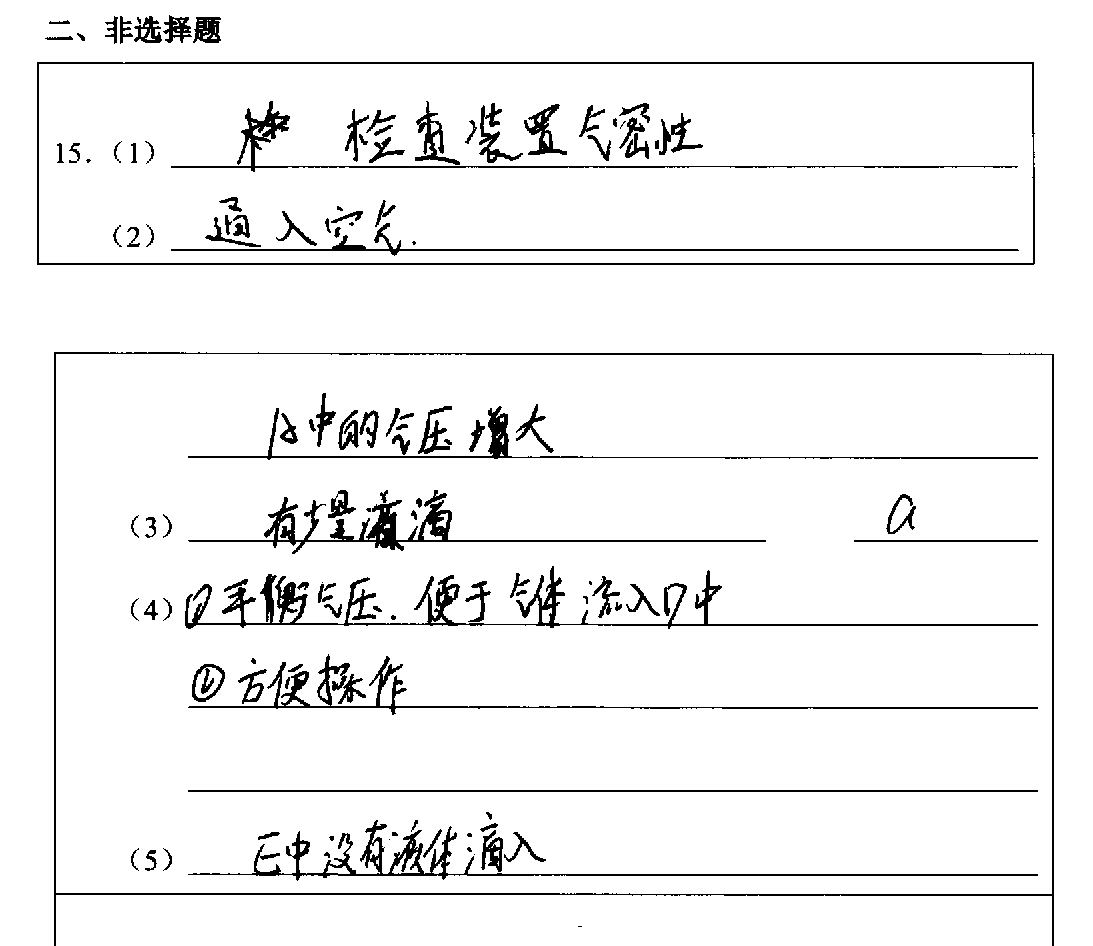 二、非选择题
15.（1） 检查装置气密性
（2） 通入空气.
A中的气压增大
（3） 有 液滴 a
（4） ①平衡气压.便于气体流入D中
②方便操作
（5） E中没有液体滴入